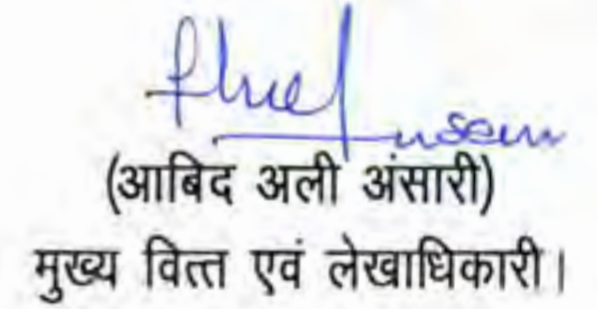 (आबिद अली अंसारी)
मुख्य वित्त एवं लेखाधिकारी।